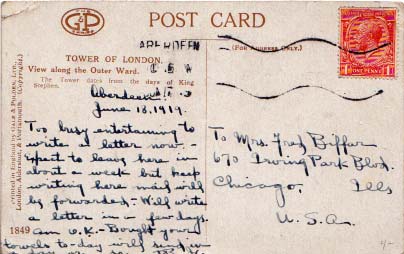 G&P
POST CARD
TOWER OF LONDON.
View along the Outer Ward.
The Tower dates from the days of King
Stephen.
(FOR ADDRESS ONLY.)
ABERDEEN
ONE PENNY
Printed in England by Gale & Polden, Ltd.,
London, Aldershot, & Portsmouth. (Copyright.)
Aberdeen
June 18, 1919.
Too busy entertaining to
write a letter now -
expect to leave here in
about a week but keep
writing here mail will
be forwarded. - Will write
a letter in a few days.
1849 am O.K. - Bought your
towels to-day will send in
a day or so.
To Mrs. Fred Biffar
670 Irving Park Blvd.
Chicago, Ills
U.S.A.